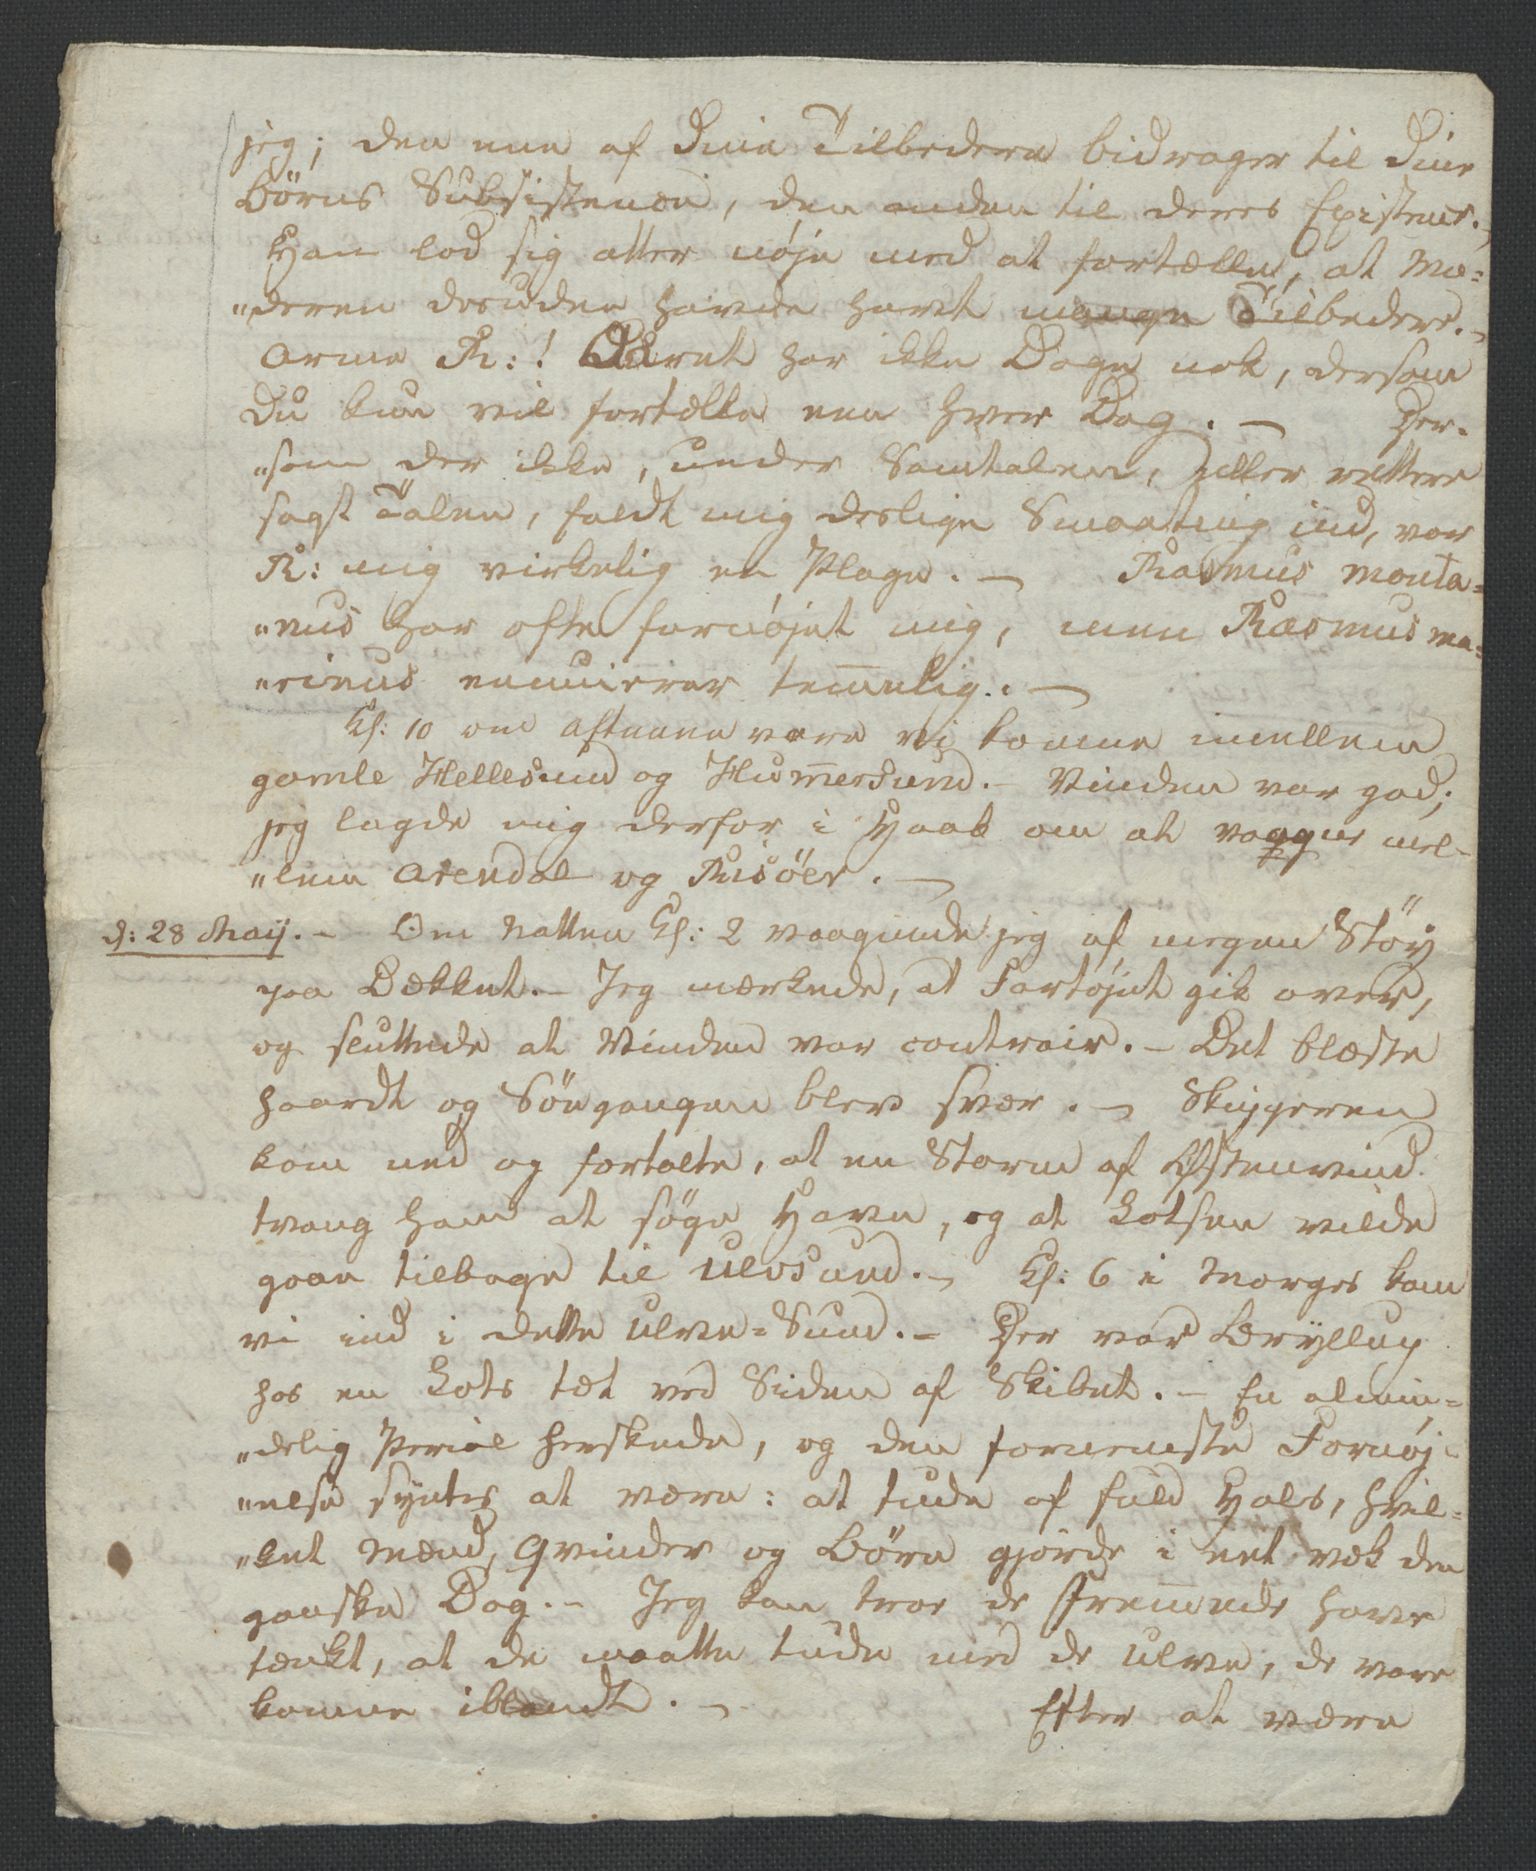 jeg; den ene af dine Tilbedere bidrager til dine
Börns Subsistence, den anden til deres Existens.-
Han lod sig atter nøje med at fortælle, at Mo=
"deren desuden havde havt mange Tilbedere.-
Arme R:! Aaret har ikke Dage nok, dersom
Du kun vil fortælle een hver Dag. - Der=
"som der ikke, under Samtalen, eller rettere
sagt Talen, faldt mig deslige Smaating ind, var
R: mig virkelig en Plage. - Rasmus monta=
"nus har ofte fornøjet mig, men Rasmus ma=
"rinus ennuierer temelig. -
Kl: 10 om Aftenen vare vi komne imellem
gamle Hellesund og Hummersund. - Vinden var god;
jeg lagde mig derfor i Haab om at vaagne mel=
"lem Arendal og Risöer. -
d: 28 Maij. - Om Natten Kl: 2 vaagnede jeg af megen Støy
paa Dækket. - Jeg mærkede, at Fartøjet gik over,
og sluttede at Vinden var contrair. - Det blæste
haardt og Söegangen blev svær. - Skipperen
kom ned og fortalte, at en Storm af Østenvind
tvang ham at søge Havn, og at Lotsen vilde
gaae tilbage til Ulvsund. - Kl: 6 i Morges kom
vi ind i dette Ulve=Sund. - Der var Bryllup
hos en Lots tæt ved Siden af Skibet. - En almin=
"delig Perial herskede, og den fornemste Fornøj=
"else syntes at være: at tude af fuld Hals, hvil=
"ket Mænd, Qvinder og Börn gjorde i eet væk den
ganske Dag. - Jeg kan troe de Fremmede have
tænkt, at de maatte tude med de Ulve, de vare
komne iblandt. - Efter at være